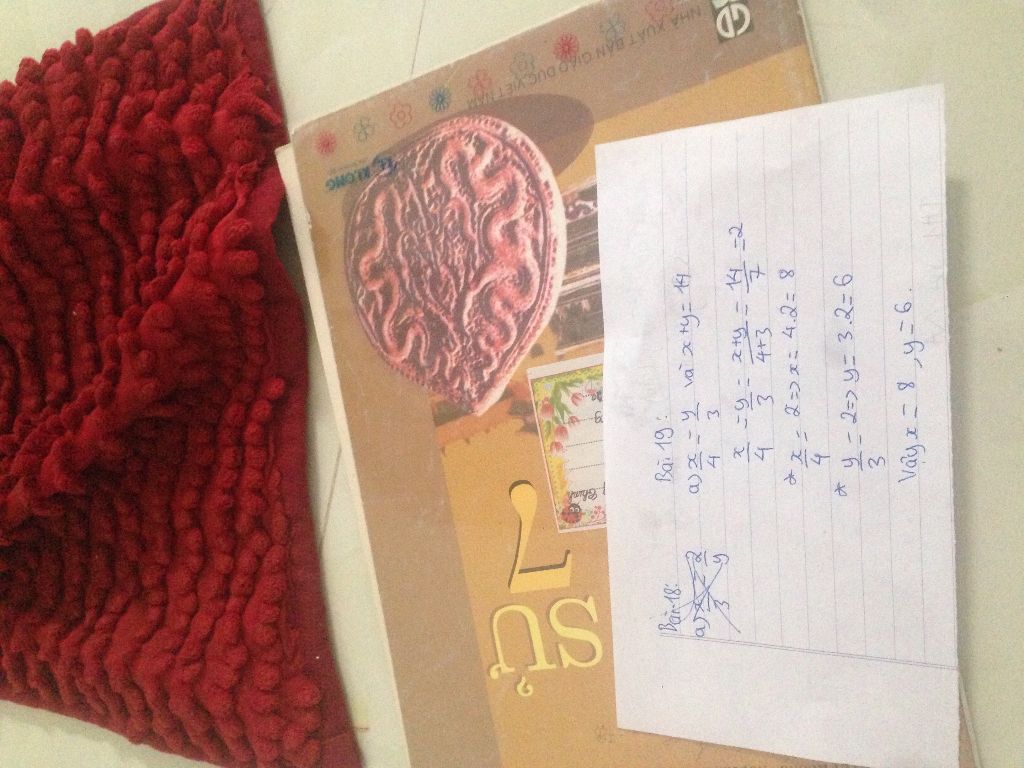 NHÀ XUẤT BẢN GIÁO DỤC VIỆT NAM
SỬ 7
Bài 18:
a) x/3 = 2/y
Bài 19:
a) x/4 = y/3 và x+y = 14
x/4 = y/3 = x+y/4+3 = 14/7 = 2
* x/4 = 2 => x = 4.2 = 8
* y/3 = 2 => y = 3.2 = 6
Vậy x = 8, y = 6.